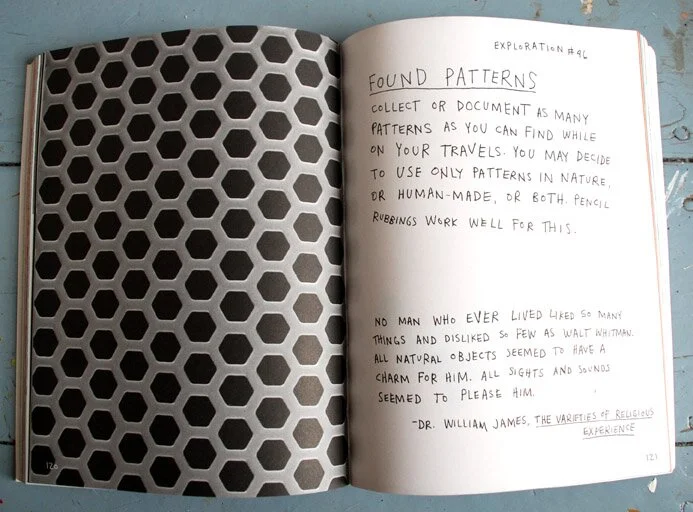 EXPLORATION #46
FOUND PATTERNS
COLLECT OR DOCUMENT AS MANY
PATTERNS AS YOU CAN FIND WHILE
ON YOUR TRAVELS. YOU MAY DECIDE
TO USE ONLY PATTERNS IN NATURE,
OR HUMAN-MADE, OR BOTH. PENCIL
RUBBINGS WORK WELL FOR THIS.
NO MAN WHO EVER LIVED LIKED SO MANY
THINGS AND DISLIKED SO FEW AS WALT WHITMAN.
ALL NATURAL OBJECTS SEEMED TO HAVE A
CHARM FOR HIM. ALL SIGHTS AND SOUNDS
SEEMED TO PLEASE HIM.
-DR. WILLIAM JAMES, THE VARIETIES OF RELIGIOUS
EXPERIENCE
126
127